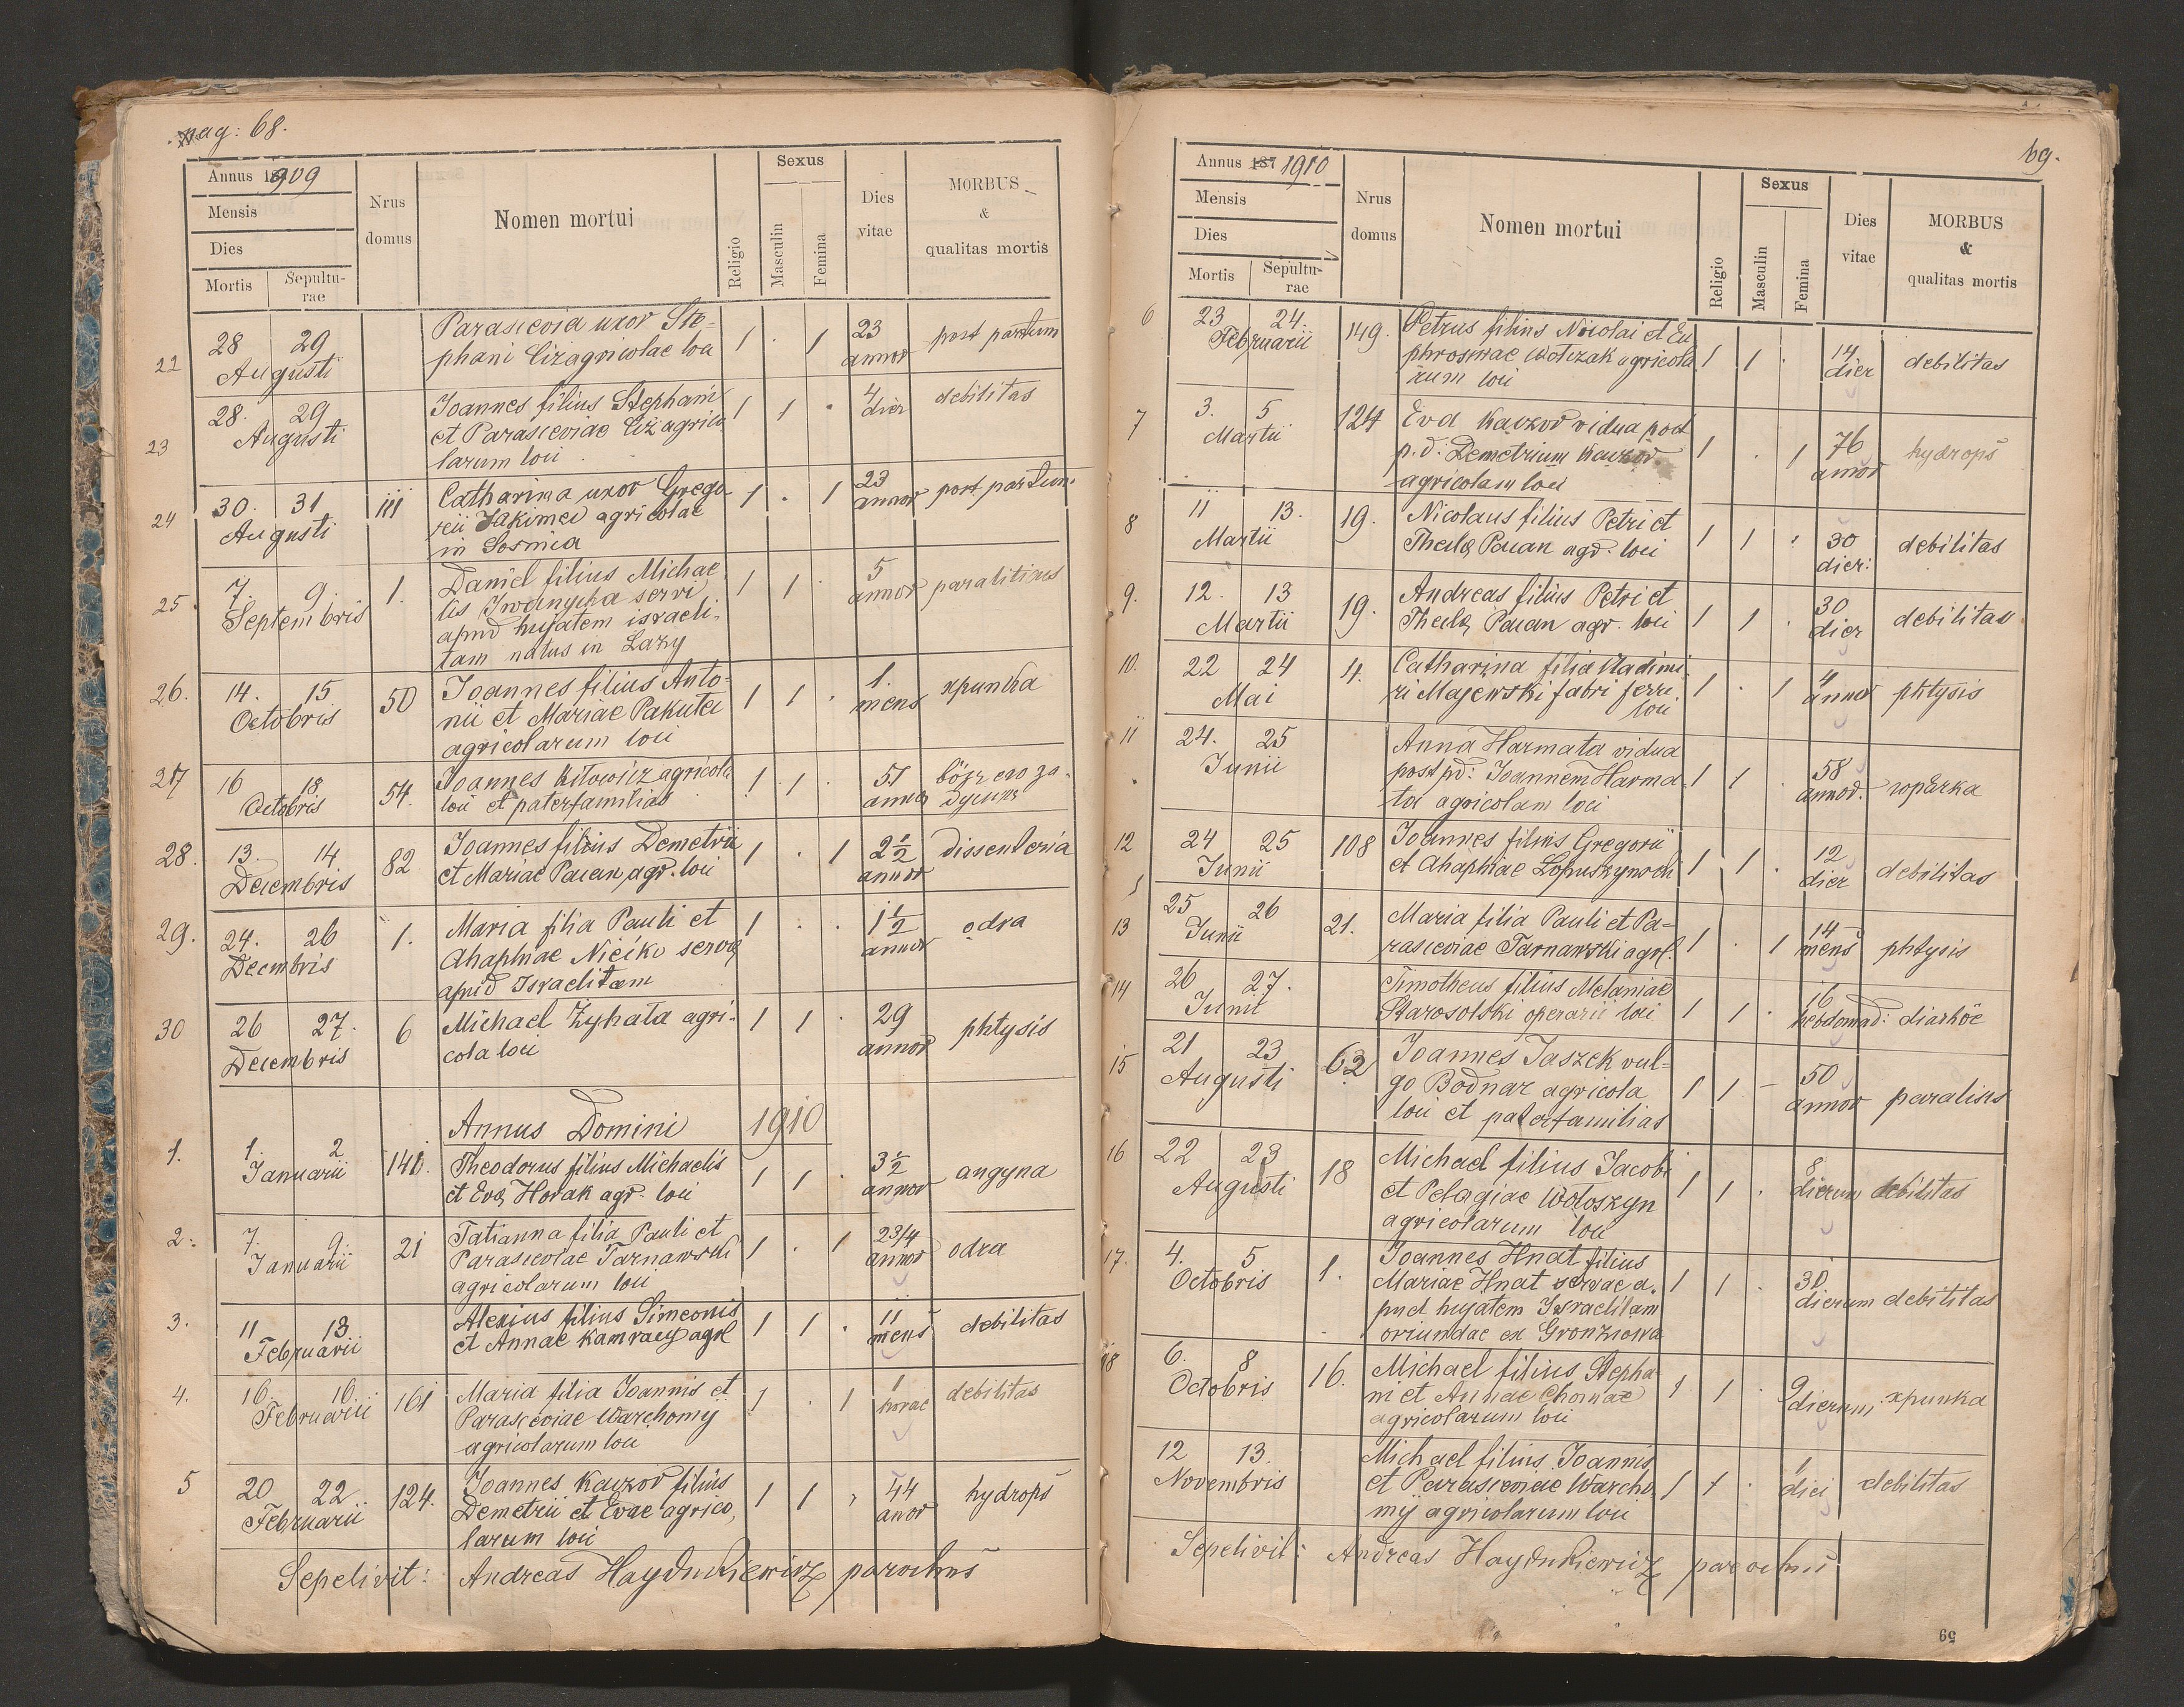 pag: 68.
Annus 1909
Mensis
Dies
Mortis
Sepultu-
rae
Nrus
domus
Nomen mortui
Religio
Sexus
Masculin
Femina
Dies
vitae
MORBUS
&
qualitas mortis
22 28 29 Augusti
Parascevia uxor Ste-
phani Ciz agricolae loci
1 . 1 23 annor post partum
23 28. 29 Augusti
Joannes filius Stephani
et Parasceviae Ciz agrico
larum loci
1 1 . 4 dier debilitas
24 30. 31 Augusti 111
Catharina uxor Grego
rii Jakimei agricolae
in Sosnica
1 . 1 23 annor post partum
25. 7. 9. Septembris 1.
Daniel filius Michae
lis Iwanycha servi
apud hujatem israeli-
tam natus in Lazy
1 1 . 5 annor paraliticus
26. 14. 15 Octobris 50
Joannes filius Anto-
nii et Mariae Pakuta
agricolarum loci
1 1 . 1. mens хрипка
27 16 18 Octobris 54.
Joannes Kitowicz agricola
loci et paterfamilias
1 1 . 51
28. 13. 14 Decembris 82
Joannes filius Demetrii
et Mariae Pacan agr. loci
1 . 1 2 1/2 annor dissenteria
29. 24. 26 Decembris 1.
Maria filia Pauli et
Ahaphiae Niciko servae
apud Israelitam
1 . . 1 1/2 annor odra
30 26 27. Decembris 6
Michael Zyhata agri-
cola loci
1 1 . 29 annor phtysis
Annus Domini 1910
1. 1. 2 Januarii 140.
Theodorus filius Michaelis
et Evae Horak agr. loci
1 1 . 3 1/2 annor angyna
2. 7. 9. Januarii 21
Tatianna filia Pauli et
Parasceviae Tarnawski
agricolarum loci
1 . 1 2 3/4 annor odra
3. 11 13. Februarii
Alexius filius Simeonis
et Annae Kamracy agrl
1 1 . 11 mens debilitas
4. 16. 16. Februarii 161
Maria filia Joannis et
Parasceviae Warchomij
agricolarum loci
1 . 1 1 horae debilitas
5 20 22 Februarii 124.
Joannes Kaczor filius
Demetrii et Evae agrico,
larum loci
1 1 . 44 anor hydrops
Sepelivit: Andreas Haydukiewicz parochus
69.
Annus 187 1910
Mensis
Dies
Mortis
Sepultu-
rae
Nrus
domus
Nomen mortui
Religio
Sexus
Masculin
Femina
Dies
vitae
MORBUS
&
qualitas mortis
6 23 24. Februarii 149.
Petrus filius Nicolai et Eu
phrosinae Wolczak agricola
rum loci
1 1 . 14 dier debilitas
7 3. 5 Martii 124
Eva Kaczor vidua post
p. d: Demetrium Kaczor
agricolam loci
1 . 1 76 annor hydrops
8 11 13. Martii 19.
Nicolaus filius Petri et
Theclae Pacan agr. loci
1 1 . 30 dier: debilitas
9. 12. 13 Martii 19.
Andreas filius Petri et
Theclae Pacan agr. loci
1 1 . 30 dier debilitas
10. 22 24 Mai 4.
Catharina filia Vladimi
ri Majewski fabri ferri.
loci
1 . 1 4 annor phtysis
11 24. 25 Junii
Anna Harmata vidua
post pd: Joannem Harma
ta agricolam loci
1 1 . 58 annor.
12 24 25 Junii 108
Joannes filius Gregorii
et Ahaphiae Lopuszynski
1 1 . 12 dier debilitas
13 25 26 Junii 21.
Maria filia Pauli et Pa-
rasceviae Tarnawski agrl.
1 . 1 14 mens phtysis
14 26 27. Junii
Timotheus filius Melaniae
Starosolski operarii loci
1 1 . 16 hebdomad: diarhöe
15 21 23 Augusti 62
Joannes Jaszek vul-
go Bodnar agricola
loci et paterfamilias
1 1 – 50 annor paralisis
16 22 23 Augusti 18
Michael filius Jacobi
et Pelagiae Wołoszyn
agricolarum loci
1 1 . 8 dierum debilitas
17. 4. 5 Octobris 1.
Joannes Hnat filius
Mariae Hnat servae a.
pud hujatem Israelitam
oriundae ex Gronziowa
1 1 . 30 dierum debilitas
18 6. 8 Octobris 16.
Michael filius Stepha-
ni et Annae Chomaz
agricolarum loci
1 1 . 9 dierum хрипка
12 13. Novembris
Michael filius Joannis
et Parasceviae Warcho
mij agricolarum loci
1 1 . 1 diei debilitas
Sepelivit: Andreas Haydukiewicz parochus
59